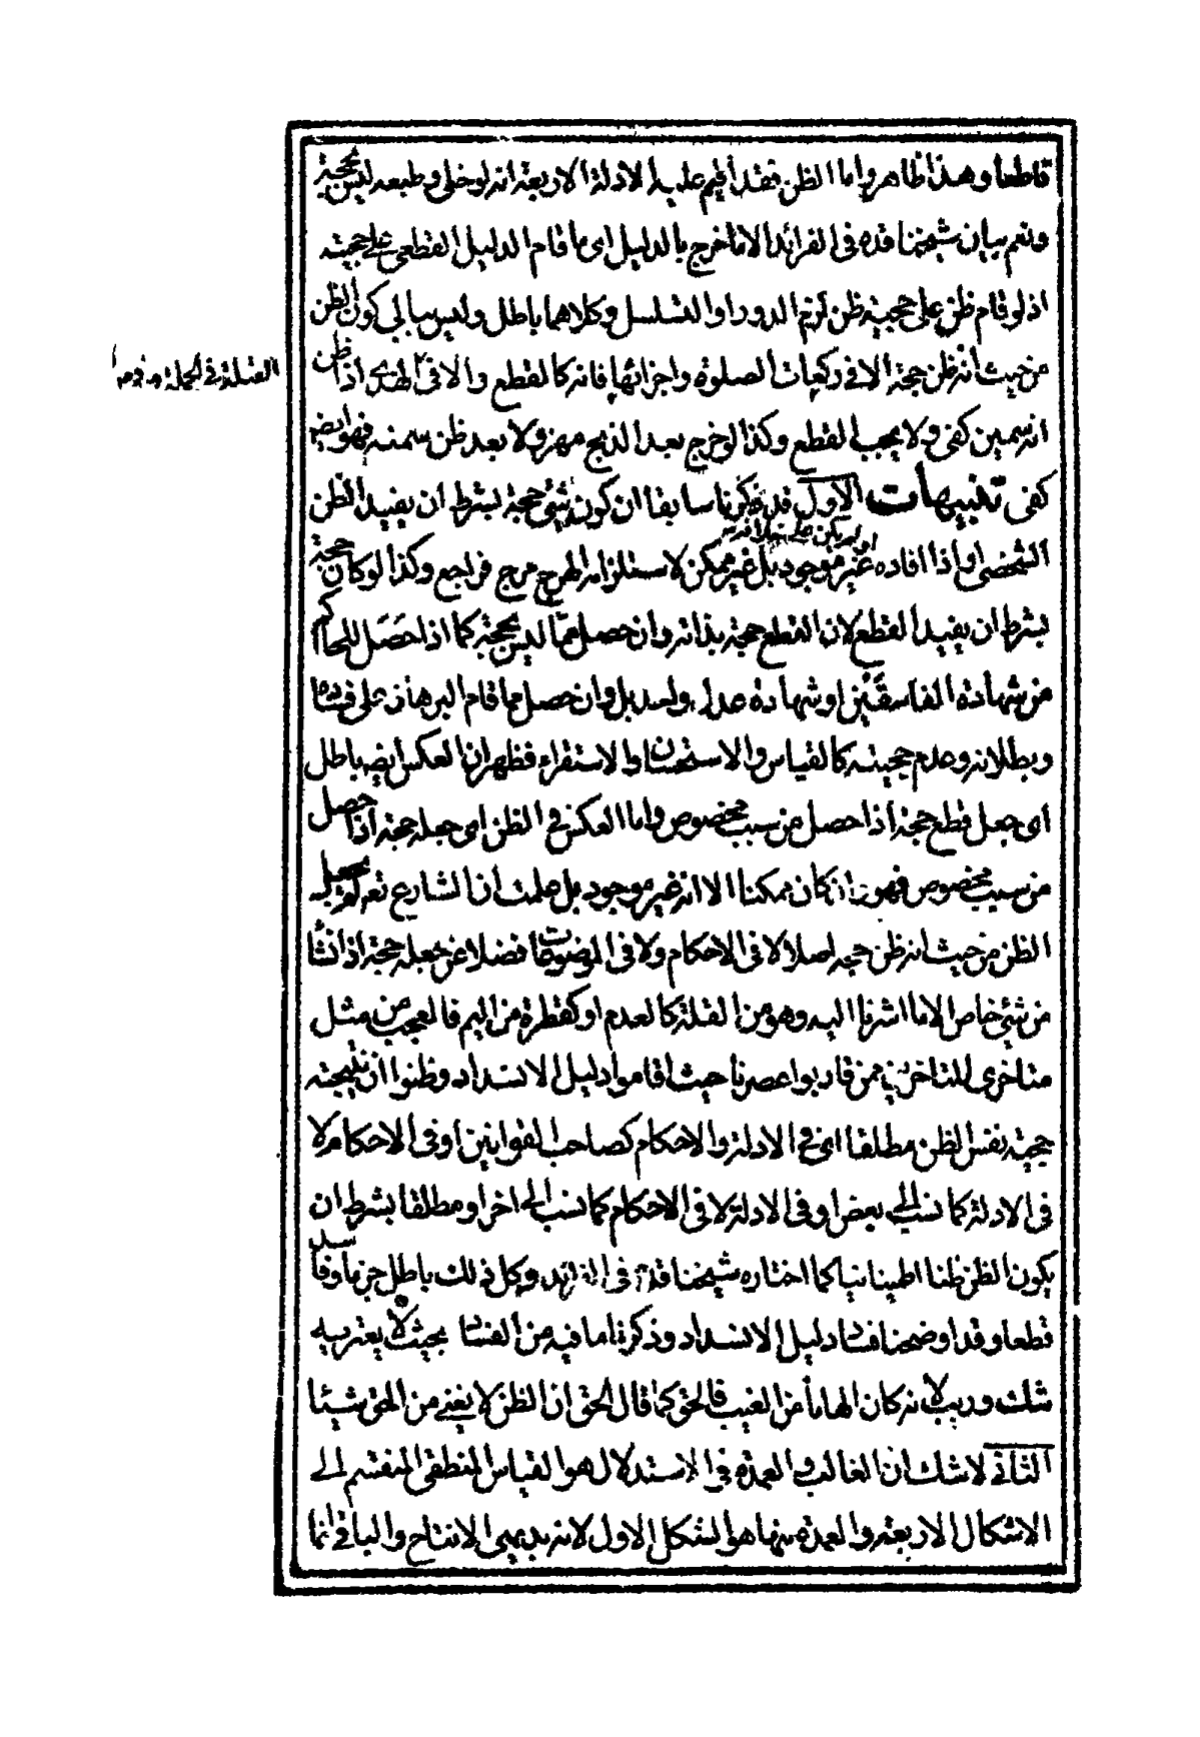 قاطعا وهذا ظاهر واما الظن فقد اقيم عليه الادلة الاربعة انه لو خلي وطبعه ليس بحجة
ونعم بيان شيخنا قده في الفرائد الا ما خرج بالدليل اى ما قام الدليل القطعي على حجيته
اذ لو قام ظن على حجية ظن لزم الدور او التسلسل وكلاهما باطل وليس ببالي كون الظن
من حيث انه ظن حجة الا في ركعات الصلوة واجزائها فانه كالقطع والا في الهدى اذا ظن
القبلة في الجملة
انه سمين كفى ولا يجب القطع وكذا لو خرج بعد الذبح مهزولا بعد ظن سمنه فهو ايضا
كفى تنبيهات الاول قد ذكرنا سابقا ان كون شئ حجة بشرط ان يفيد الظن
او لم يكن على خلافه
الشخصى او اذا افاده غير موجود بل غير ممكن لاستلزامه الهرج مرج فراجع وكذا لو كان حجة
بشرط ان يفيد القطع لان القطع حجة بذاته وان حصل مما ليس بحجة كما اذا حصل للحاكم
من شهادة الفاسقين او شهادة عدل واحد بل وان حصل مما قام البرهان على فساده
وبطلانه وعدم حجيته كالقياس والاستحسان والاستقراء فظهر ان العكس ايضه باطل
اى جعل قطع حجة اذا حصل من سبب مخصوص واما العكس في الظن اى جعله حجة اذا حصل
من سبب مخصوص فهو وان كان ممكنا الا انه غير موجود بل علمت ان الشارع تعه لم يجعل
الظن من حيث انه ظن حجة اصلا لا في الاحكام ولا في الموضوعات فضلا عن جعله حجة اذا نشأ
من شئ خاص الا ما اشرنا اليه وهو من القلة كالعدم او كقطرة من اليم فالعجب من مثل
متاخرى المتاخرين ممن قاربوا عصرنا حيث اقاموا دليل الانسداد وظنوا ان نتيجته
حجية نفس الظن مطلقا اى في الادلة والاحكام كصاحب القوانين او في الاحكام لا
في الادلة كما نسب الى بعض او في الادلة لا في الاحكام كما نسب الى اخر او مطلقا بشرط ان
يكون الظن ظنا اطمينانيا كما اختاره شيخنا قده في الفرائد وكل ذلك باطل جزما وفاسد
قطعا وقد اوضحنا فساد دليل الانسداد وذكرنا ما فيه من الفساد بحيث لا يعتريه
شك وريب لانه كان الهاما من الغيب فالحق كما قال الحق ان الظن لا يغني من الحق شيئا
الثاني لا شك ان الغالب والعمدة في الاستدلال هو القياس المنطقي المنقسم الى
الاشكال الاربعة والعمدة منها هو الشكل الاول لانه بديهى الانتاج والباقي انما